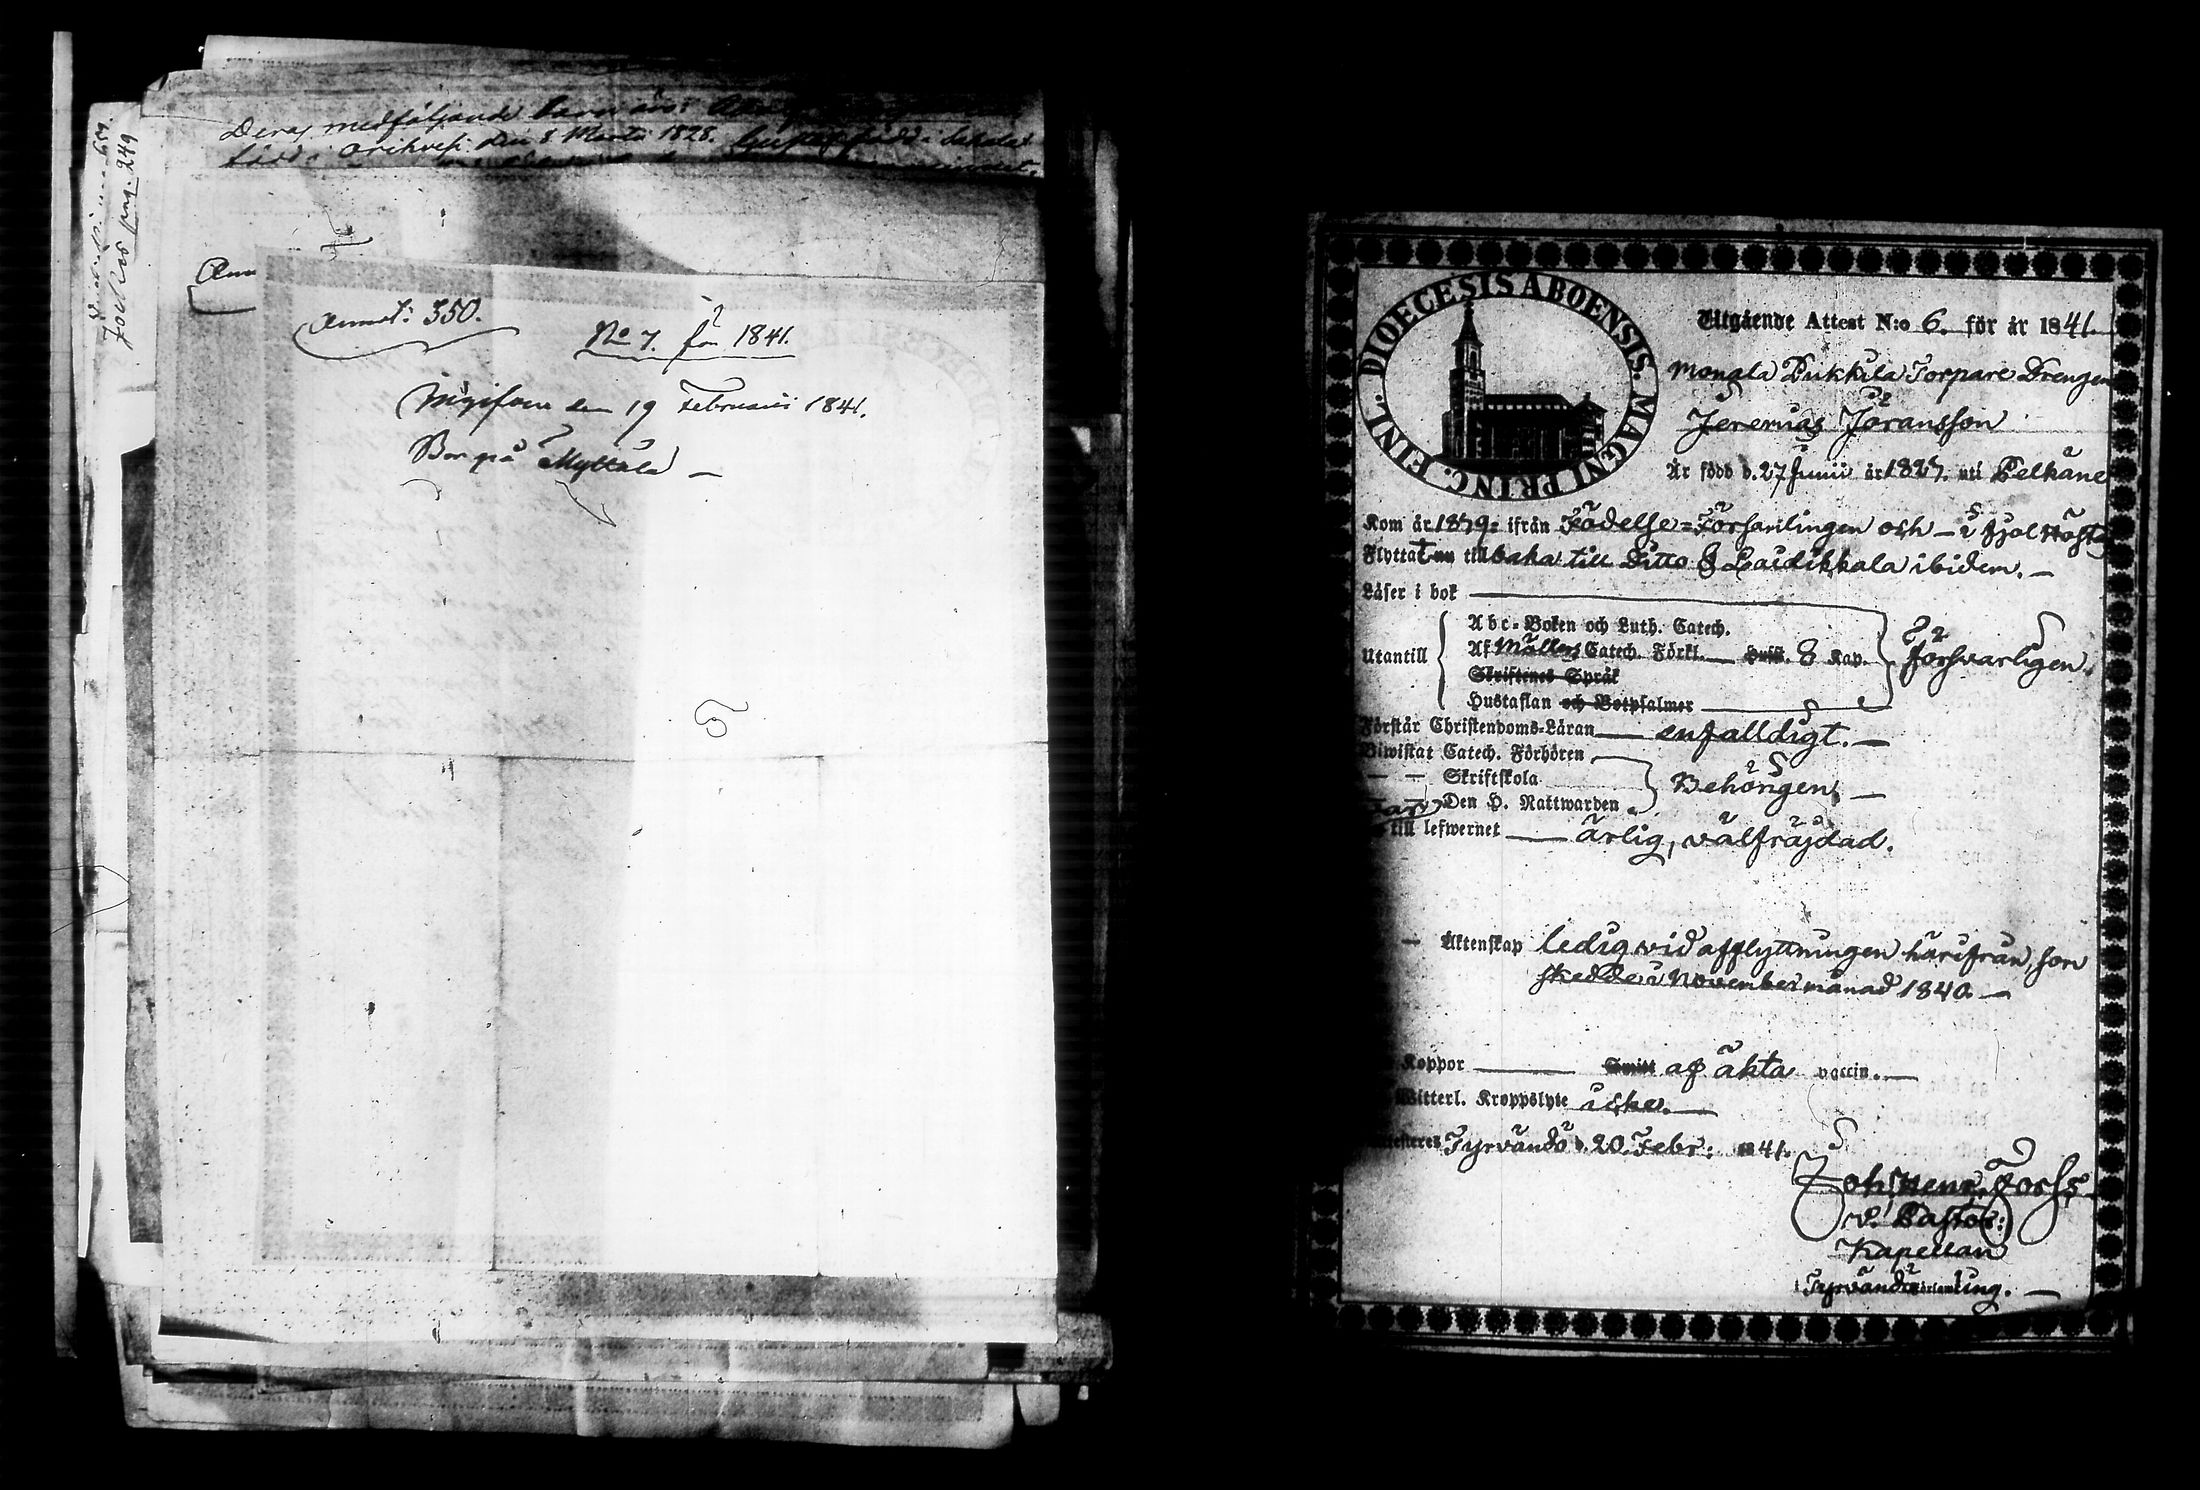 Deras medföljande barn äro:
född i Orihvesi den 8 Martii 1828. född i Sahalax
pag. 249
Annot: 350.
No 7. för 1841.
Ingifven den 19 Februarii 1841.
Bor på Myttälä —
DIOECESIS ABOENSIS. MAGNI PRINC. FINL.
Utgående Attest N:o 6. för år 1841.
Monala Pukkila Torpare Drengen
Jeremias Jöransson
Är född d. 27 Junii år 1827. uti Pelkäne
Kom år 1839 ifrån Födelse-Församlingen och
Flyttat nu tillbaka till Ditto & Laidikkala ibidem. —
Läser i bok
Abc-Boken och Luth. Catech.
Utantill Af Möllers Catech. Förkl. 8 Kap. Försvarligen.
Skriftenes Språk
Hustaflan och Botpsalmer
Förstår Christendoms-Läran enfalldigt. —
Biwistat Catech. Förhören
— — Skriftskola Behörigen. —
Den H. Nattwarden
till lefwernet ärlig, välfräjdad.
— Äktenskap ledig vid afflyttningen härifrån, som
skedde i November månad 1840. —
Koppor af äkta vaccin. —
Witterl. Kroppslyte icke. —
Attesteres Tyrvändö d. 20. Febr: 1841.
Joh. Henr. Forss
v. Pastor.
Kapellan
i Tyrvändö Församling. —